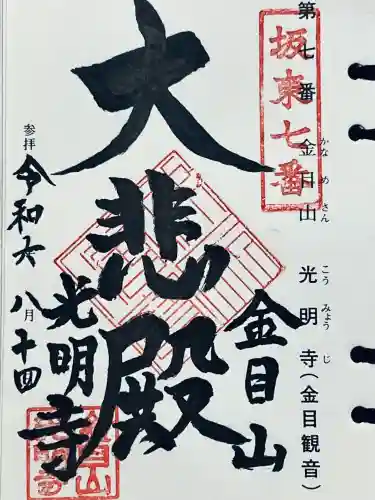 第七番 金目山 光明寺(金目観音)
かな め さん こう みょう じ
坂東七番
金目山
大悲殿
光明寺
参拝 令和六 八月十四